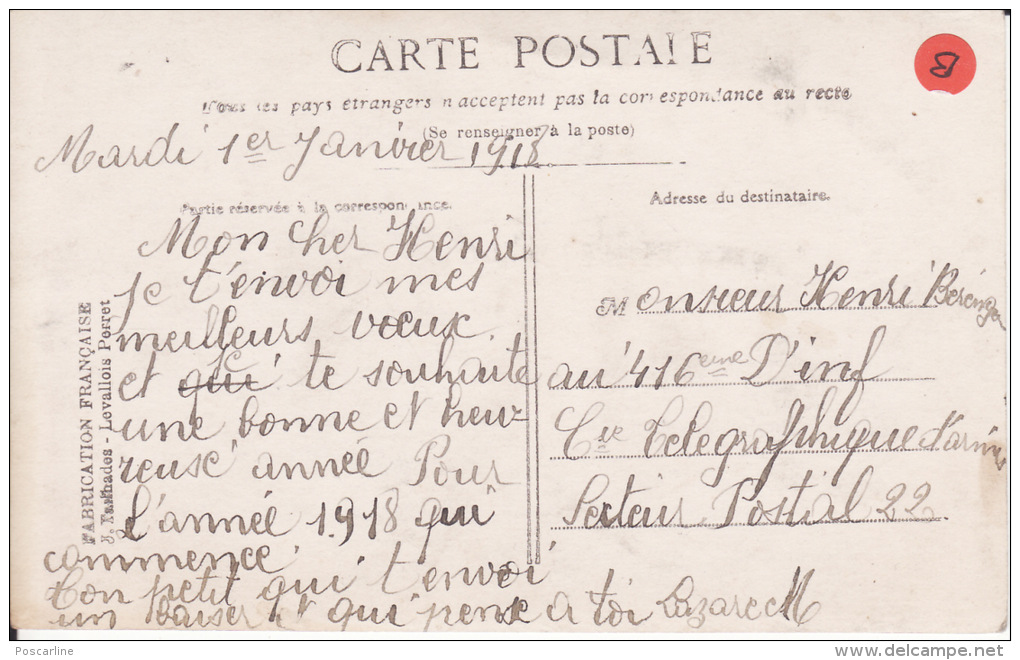 CARTE POSTALE
Tous les pays étrangers n'acceptent pas la correspondance au recto
(Se renseigner à la poste)
Mardi 1er Janvier 1918
Partie réservée à la correspondance.
Adresse du destinataire.
Mon cher Henri
je t'envoi mes
meilleurs vœux
et qui je te souhaite
une bonne et heu-
reuse année Pour
l'année 1918 qui
commence
ton petit qui t'envoi
un baiser et qui pense a toi Lazare M
Monsieur Henri Bérenger
au 416eme D'inf
Cie Telegraphique
Secteur Postal 22
FABRICATION FRANÇAISE
Levallois Perret
B
Poscarline